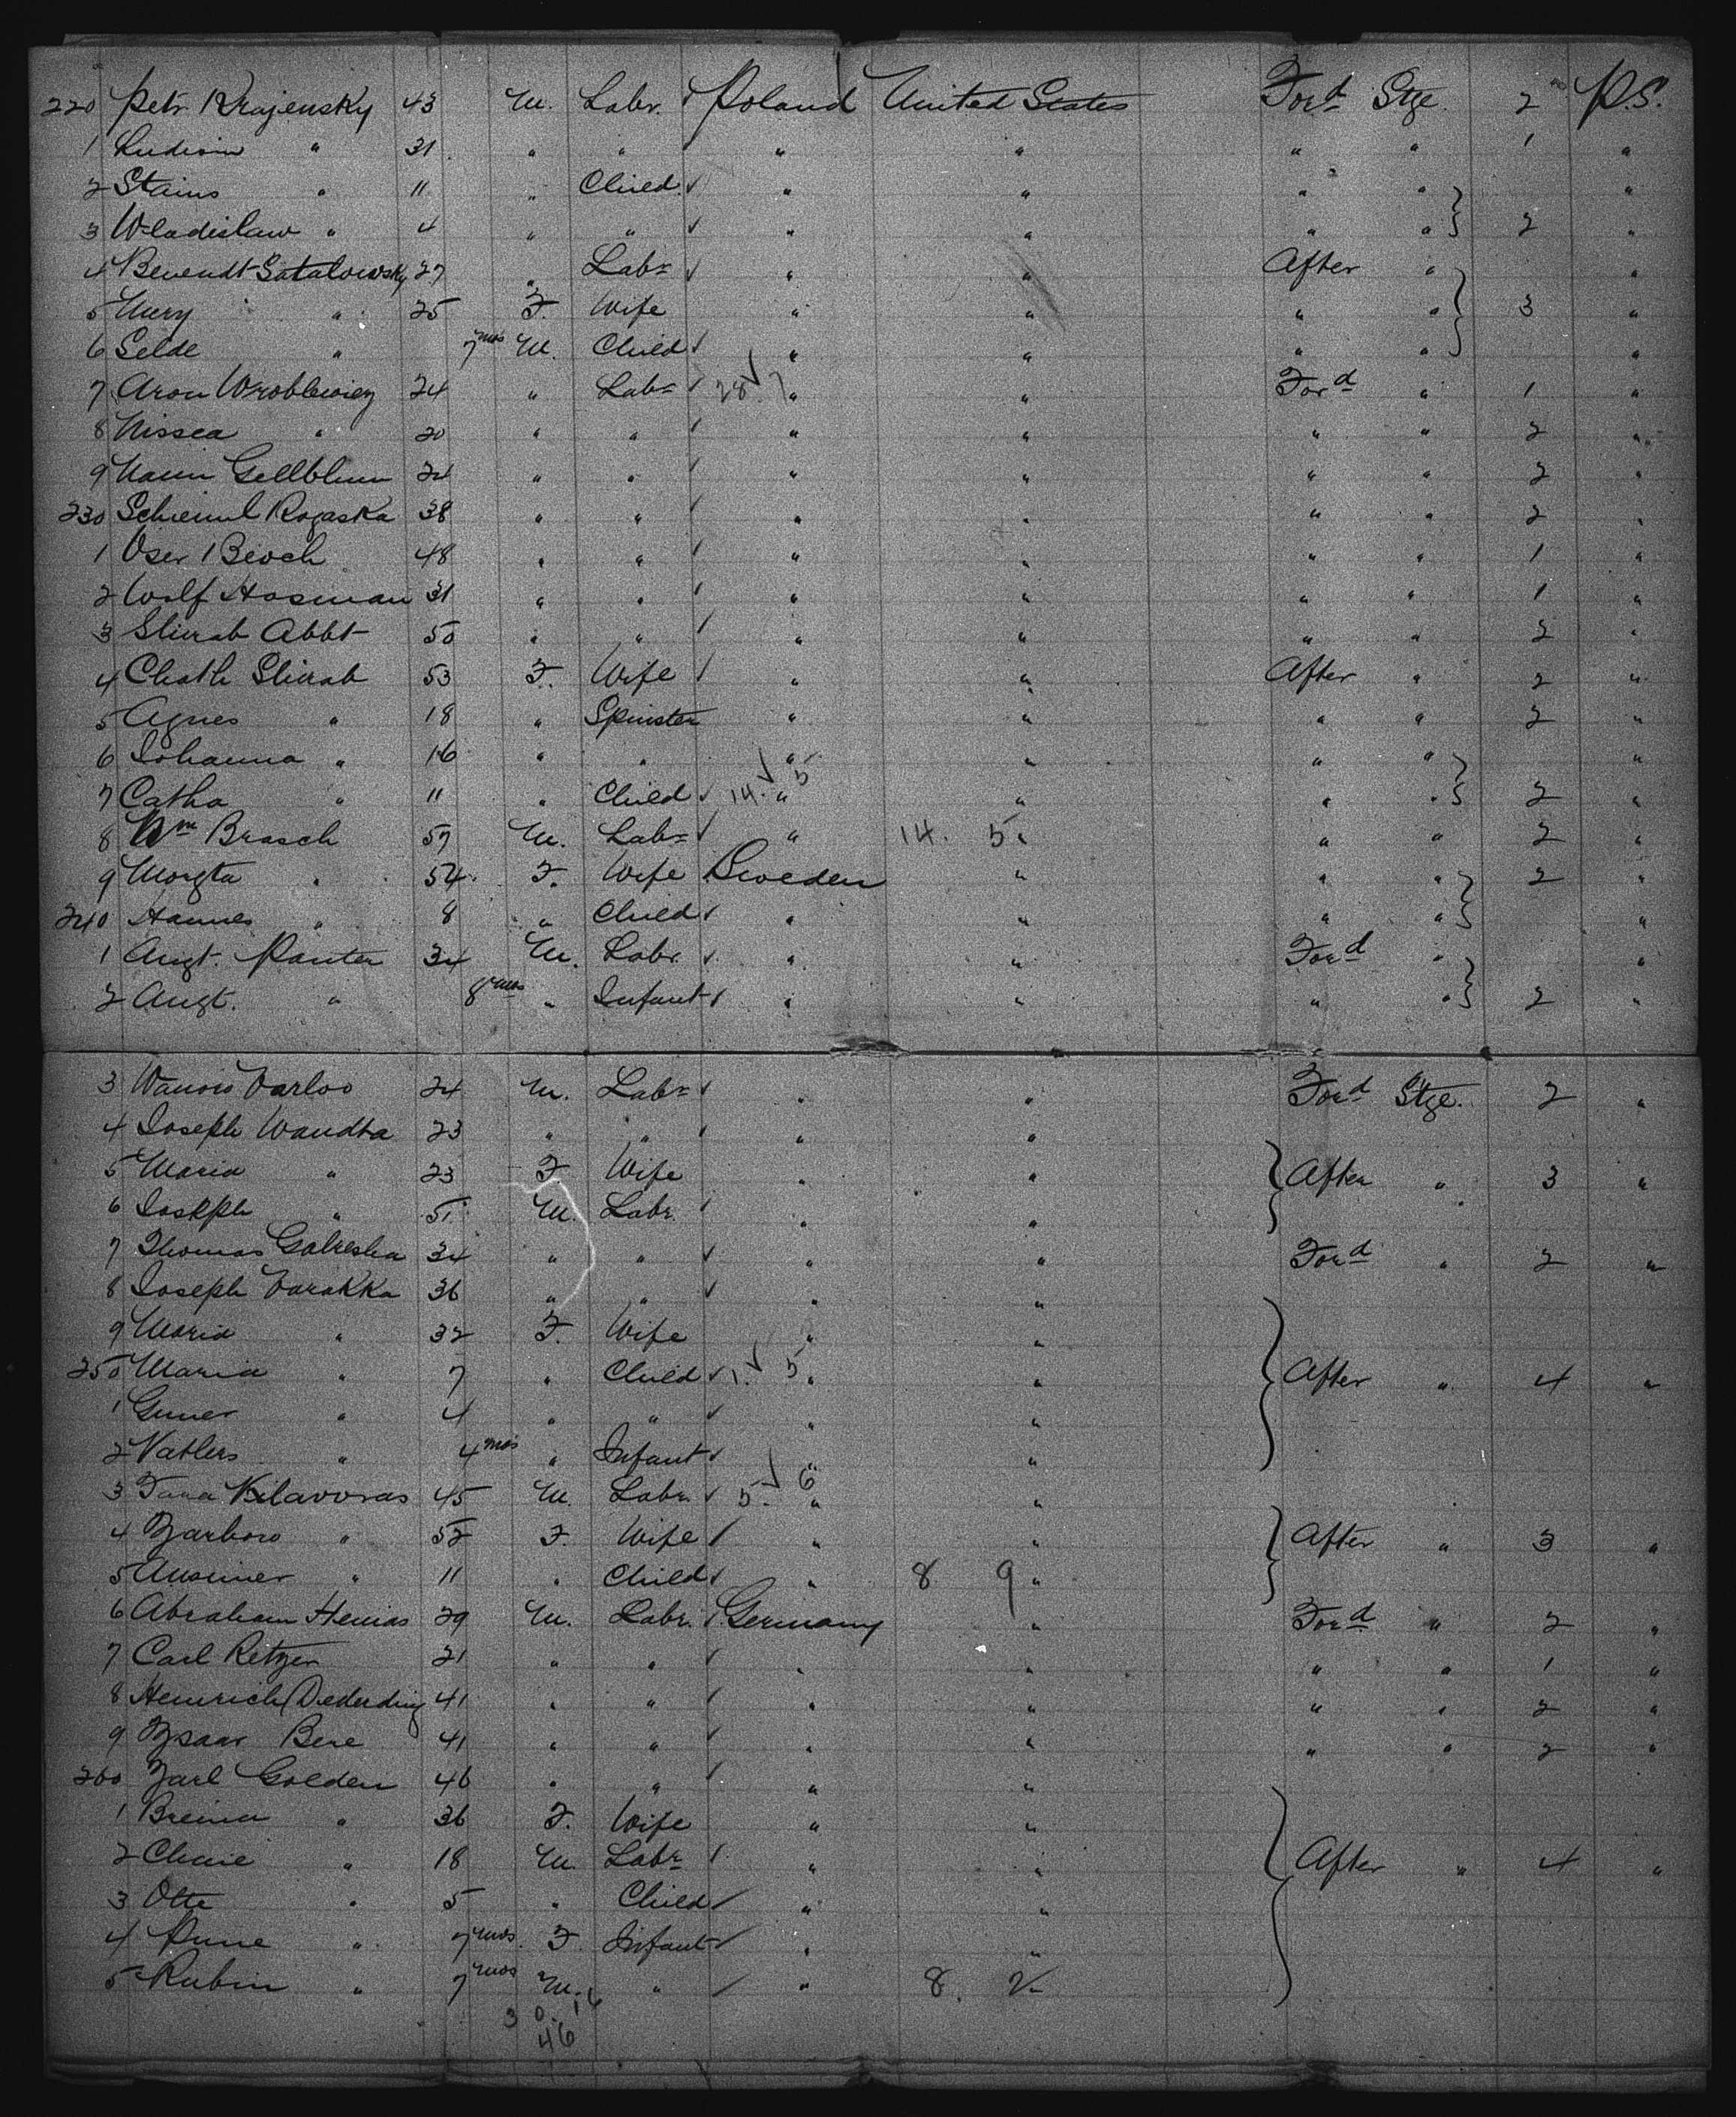 220 Petr Krajensky 43 M. Labr. ✓ Poland United States Ford Stge. 2 P.S.
1 Ludisin " 31 " " " " " " 1 "
2 Stains " 11 " Child ✓ " " " " "
3 Wladislaw " 4 " " ✓ " " " " } 2 "
4 Berendt Satalowsky 27 " Labr ✓ " " After " "
5 Mery " 25 F. Wife " " " " } 3 "
6 Selde " 7 mos M. Child ✓ " " " " "
7 Aron Wroblewicz 24 " Labr ✓ 28 ✓ 7 " " Ford " 1 "
8 Nissea " 20 " " ✓ " " " " 2 "
9 Naum Gellblum 24 " " ✓ " " " " 2 "
230 Schiemul Rogaska 38 " " ✓ " " " " 2 "
1 Oser Bioch 48 " " ✓ " " " " 1 "
2 Wolf Hosman 31 " " ✓ " " " " 1 "
3 Slivab Abbt 50 " " ✓ " " " " 2 "
4 Chath Slivab 53 F. Wife ✓ " " After " 2 "
5 Agnes " 18 " Spinster " " " " 2 "
6 Johanna " 16 " " " " " " "
7 Catha " 11 " Child ✓ 14. ✓ 5 " " " " } 2 "
8 Wm Brasch 57 M. Labr ✓ " 14. 5 " " " 2 "
9 Morgta " 54 F. Wife Sweden " " " 2 "
240 Hannes " 8 " Child ✓ " " " " } "
1 Augt. Panter 34 M. Labr. ✓ " " Ford " "
2 Augt. " 8 mos " Infant ✓ " " " " } 2 "
3 Wauow Varloo 24 M. Labr ✓ " " Ford Stge. 2 "
4 Joseph Wandta 23 " " ✓ " "
5 Maria " 23 F Wife " " } After " 3 "
6 Joseph " 51 M. Labr. ✓ " "
7 Thomas Galreska 34 " " ✓ " " Ford " 2 "
8 Joseph Varakka 36 " " ✓ " "
9 Maria " 32 F. Wife " "
250 Maria " 7 " Child ✓ 1. ✓ 5 " " } After " 4 "
1 Guner " 4 " " ✓ " "
2 Vatlers " 4 mos " Infant ✓ " "
3 Tana Kilavoras 45 M. Labr. ✓ 5. ✓ 6 " "
4 Barbow " 52 F. Wife ✓ " " } After " 3 "
5 Ausimer " 11 " Child ✓ " 8 9 "
6 Abraham Henias 29 M. Labr. ✓ Germany " Ford " 2 "
7 Carl Retzer 21 " " ✓ " " " " 1 "
8 Heinrich Dederding 41 " " ✓ " " " " 2 "
9 Isaar Bere 41 " " ✓ " " " " 2 "
260 Jarl Golden 46 " " ✓ " "
1 Breina " 36 F. Wife " "
2 Chaie " 18 M. Labr ✓ " " } After " 4 "
3 Otte " 5 " Child ✓ " "
4 Pune " 7 mos. F. Infant ✓ " "
5 Rubin " 7 mos M. " ✓ " 8. 2
30. 16
46